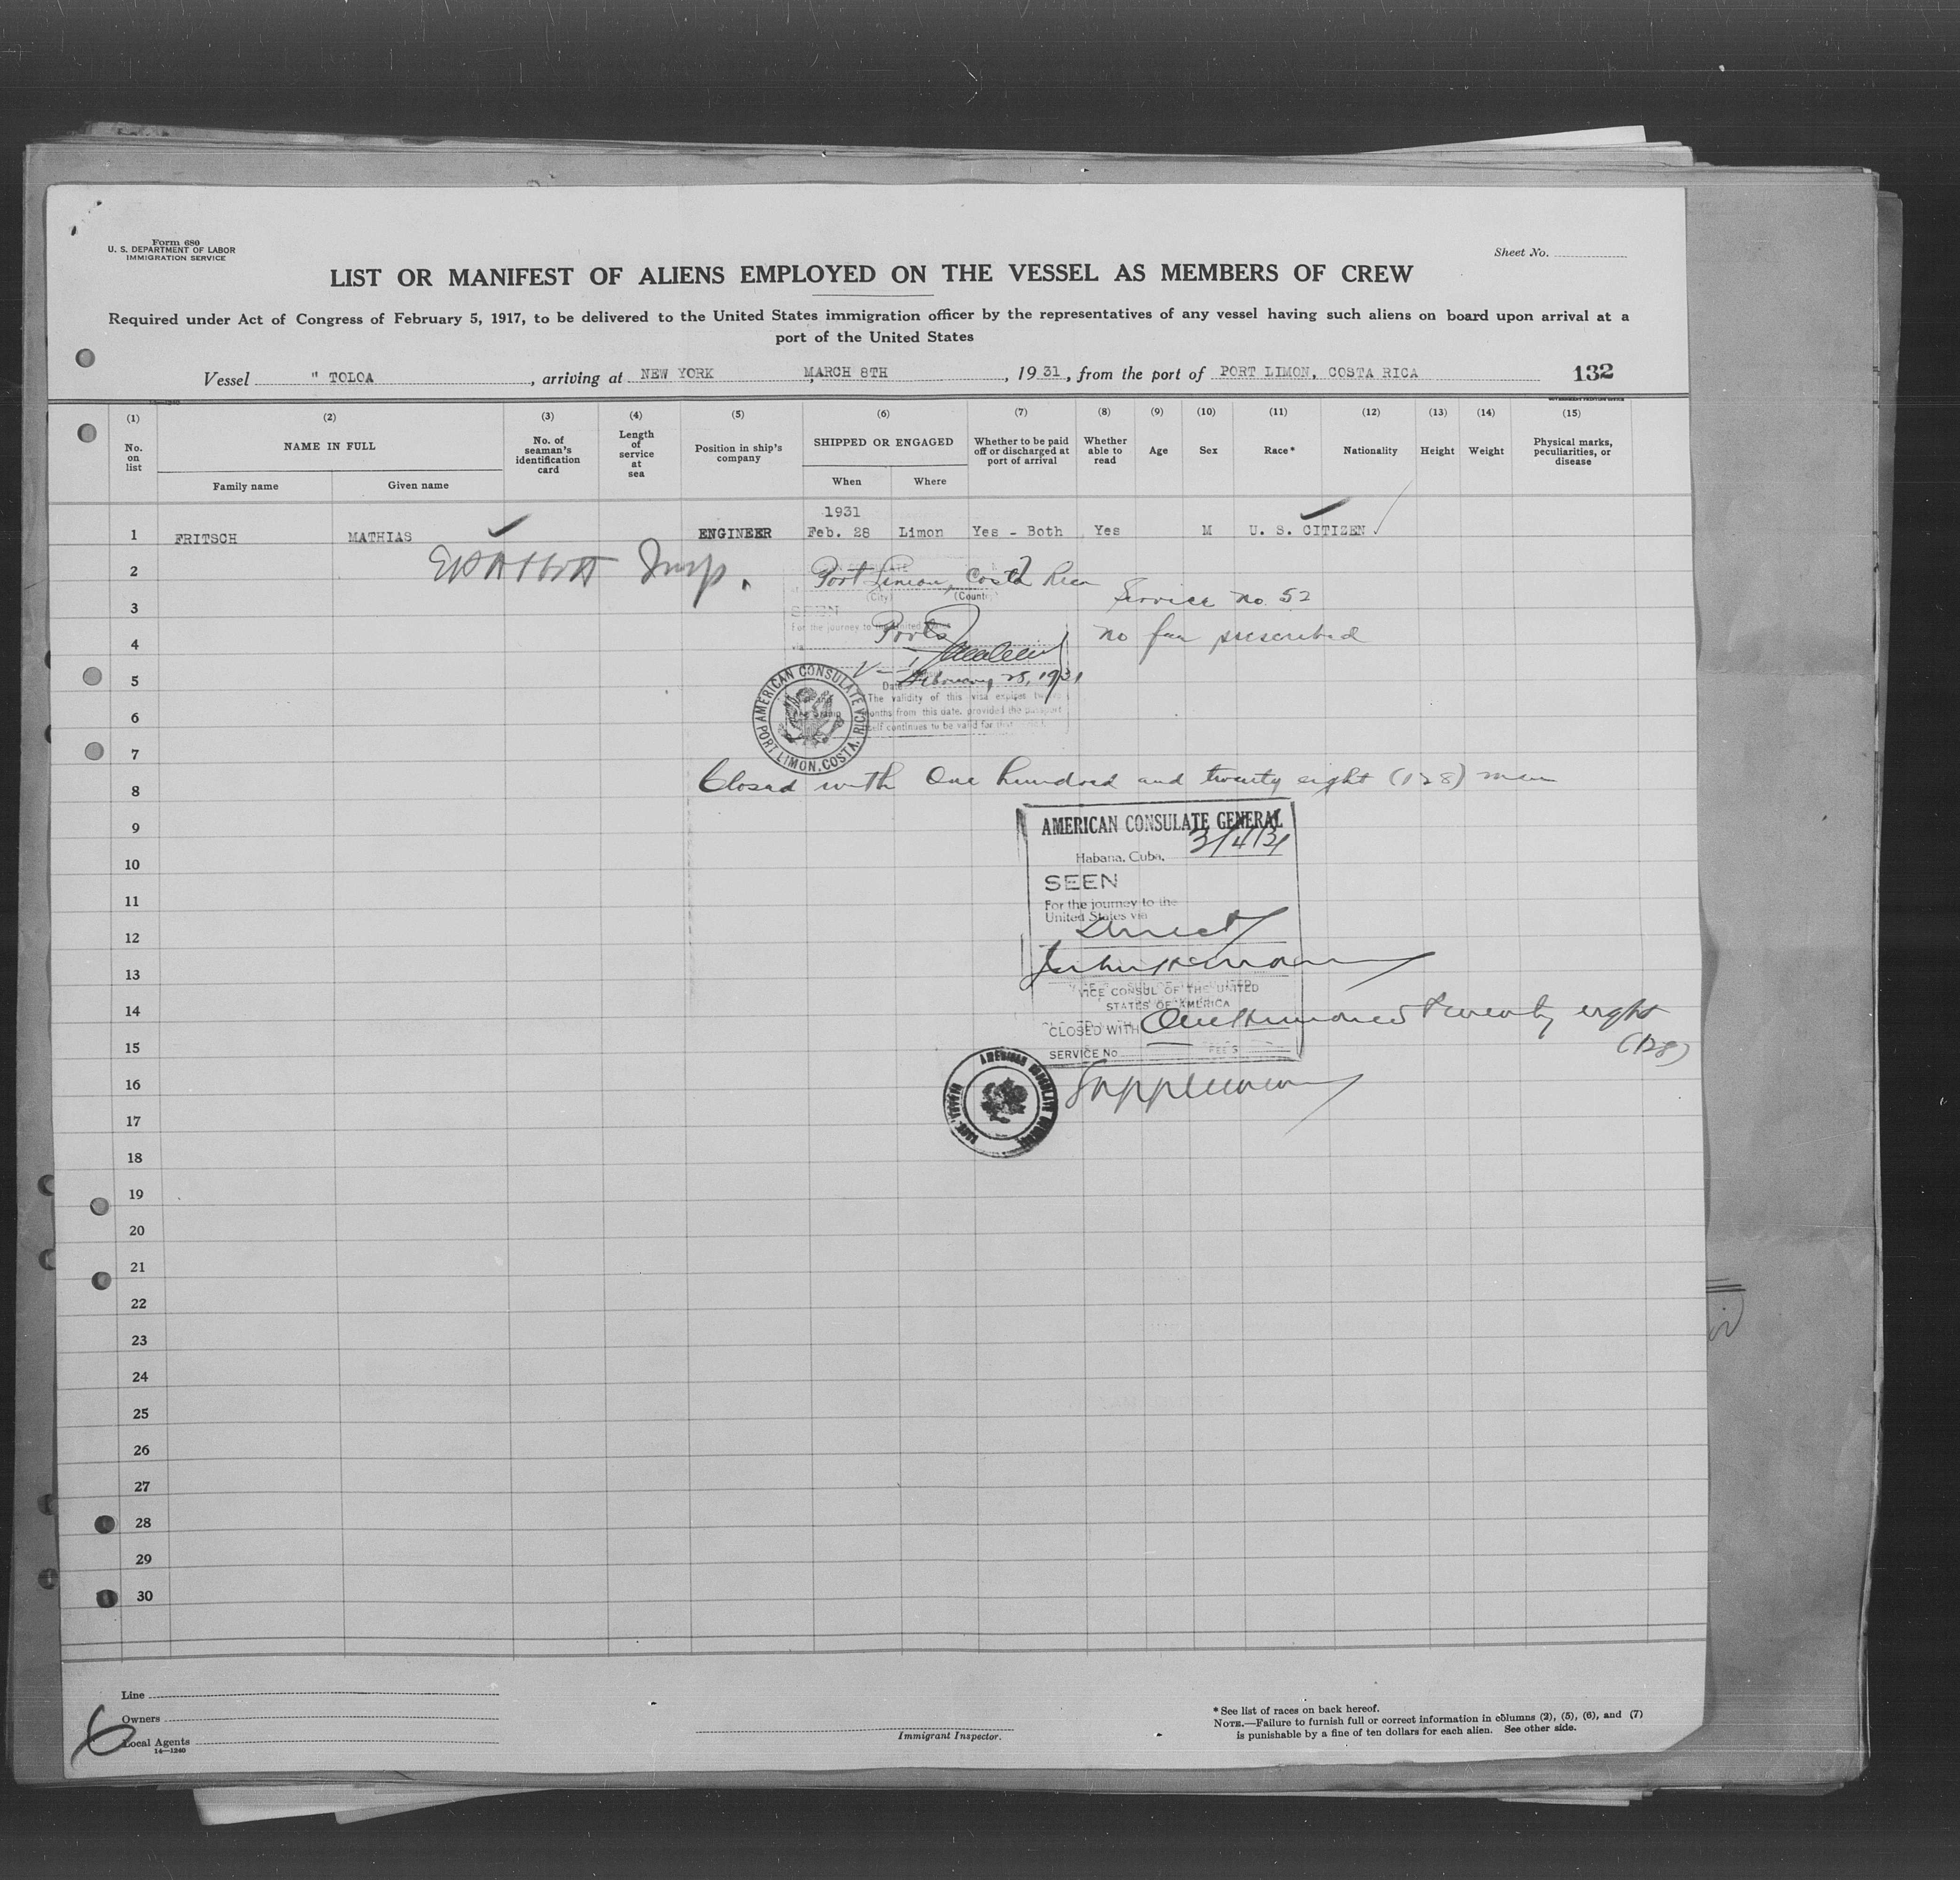 Form 680
U. S. DEPARTMENT OF LABOR
IMMIGRATION SERVICE
Sheet No.
LIST OR MANIFEST OF ALIENS EMPLOYED ON THE VESSEL AS MEMBERS OF CREW
Required under Act of Congress of February 5, 1917, to be delivered to the United States immigration officer by the representatives of any vessel having such aliens on board upon arrival at a
port of the United States
Vessel " TOLOA , arriving at NEW YORK MARCH 8TH , 1931, from the port of PORT LIMON, COSTA RICA 132
(1) (2) (3) (4) (5) (6) (7) (8) (9) (10) (11) (12) (13) (14) (15)
No. on list
NAME IN FULL
Family name
Given name
No. of seaman's identification card
Length of service at sea
Position in ship's company
SHIPPED OR ENGAGED
When
Where
Whether to be paid off or discharged at port of arrival
Whether able to read
Age
Sex
Race*
Nationality
Height
Weight
Physical marks, peculiarities, or disease
1931
1 FRITSCH MATHIAS ENGINEER Feb. 28 Limon Yes - Both Yes M U. S. CITIZEN
Insp.
2 Port Limon, Costa Rica
(City) (Country)
Service no. 52
3 SEEN
For the journey to the United States
4 no fee prescribed
via
5 Date February 28, 1931
The validity of this visa expires twelve
6 months from this date, provided the passport
itself continues to be valid for that
AMERICAN CONSULATE
PORT LIMON, COSTA RICA
7
8 Closed with One hundred and twenty eight (128) men
9 AMERICAN CONSULATE GENERAL
3/4/31
10 Habana, Cuba,
SEEN
11 For the journey to the
United States via
12 Direct
13
VICE CONSUL OF THE UNITED
STATES OF AMERICA
14 CLOSED WITH One Hundred twenty eight
(128)
15 SERVICE No FEE $
16
17
18
19
20
21
22
23
24
25
26
27
28
29
30
Line
Owners
Local Agents
14—1240
6
Immigrant Inspector.
* See list of races on back hereof.
NOTE.—Failure to furnish full or correct information in columns (2), (5), (6), and (7)
is punishable by a fine of ten dollars for each alien. See other side.